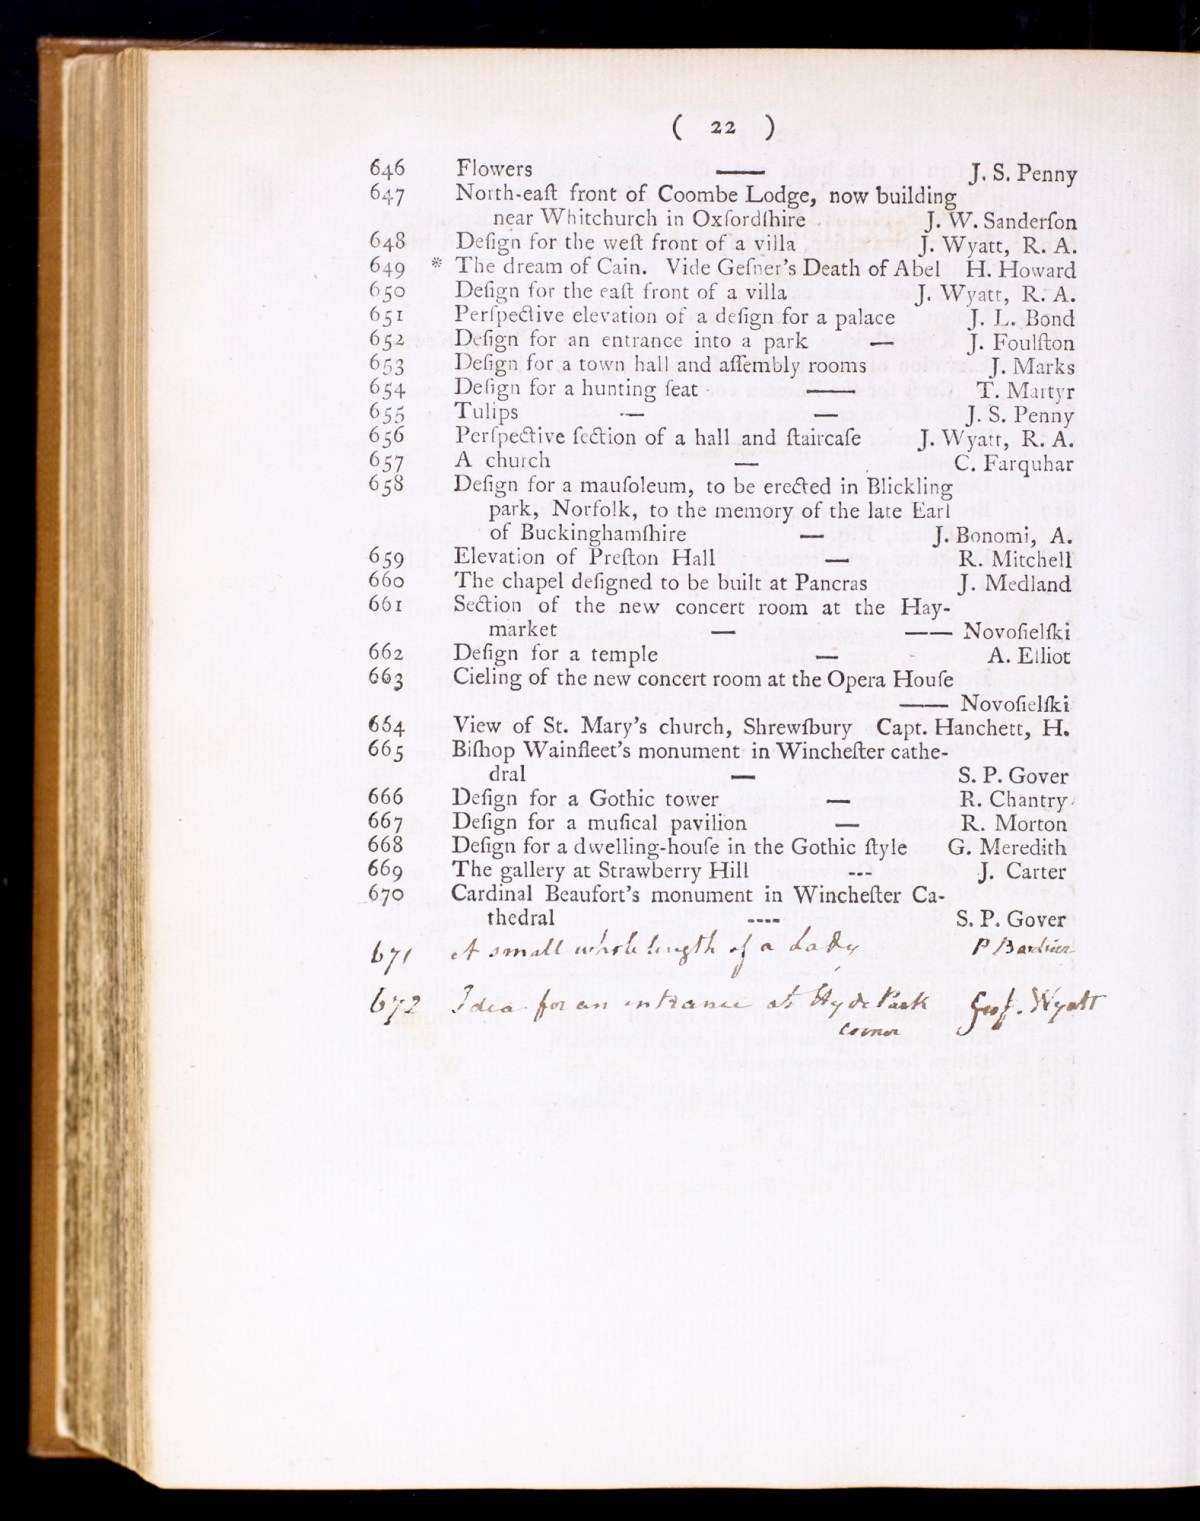 ( 22 )
646 Flowers —— J. S. Penny
647 North-eaſt front of Coombe Lodge, now building
near Whitchurch in Oxfordſhire J. W. Sanderſon
648 Deſign for the weſt front of a villa J. Wyatt, R. A.
649 * The dream of Cain. Vide Geſner's Death of Abel H. Howard
650 Deſign for the eaſt front of a villa J. Wyatt, R. A.
651 Perſpective elevation of a deſign for a palace J. L. Bond
652 Deſign for an entrance into a park — J. Foulſton
653 Deſign for a town hall and aſſembly rooms J. Marks
654 Deſign for a hunting ſeat —— T. Martyr
655 Tulips — — J. S. Penny
656 Perſpective ſection of a hall and ſtaircaſe J. Wyatt, R. A.
657 A church — C. Farquhar
658 Deſign for a mauſoleum, to be erected in Blickling
park, Norfolk, to the memory of the late Earl
of Buckinghamſhire — J. Bonomi, A.
659 Elevation of Preſton Hall — R. Mitchell
660 The chapel deſigned to be built at Pancras J. Medland
661 Section of the new concert room at the Hay-
market — —— Novoſielſki
662 Deſign for a temple — A. Elliot
663 Cieling of the new concert room at the Opera Houſe
—— Novoſielſki
664 View of St. Mary's church, Shrewſbury Capt. Hanchett, H.
665 Biſhop Wainfleet's monument in Wincheſter cathe-
dral — S. P. Gover
666 Deſign for a Gothic tower — R. Chantry
667 Deſign for a muſical pavilion — R. Morton
668 Deſign for a dwelling-houſe in the Gothic ſtyle G. Meredith
669 The gallery at Strawberry Hill --- J. Carter
670 Cardinal Beaufort's monument in Wincheſter Ca-
thedral ---- S. P. Gover
671 A small whole length of a Lady P
672 Idea for an entrance at Hyde Park Wyatt
corner